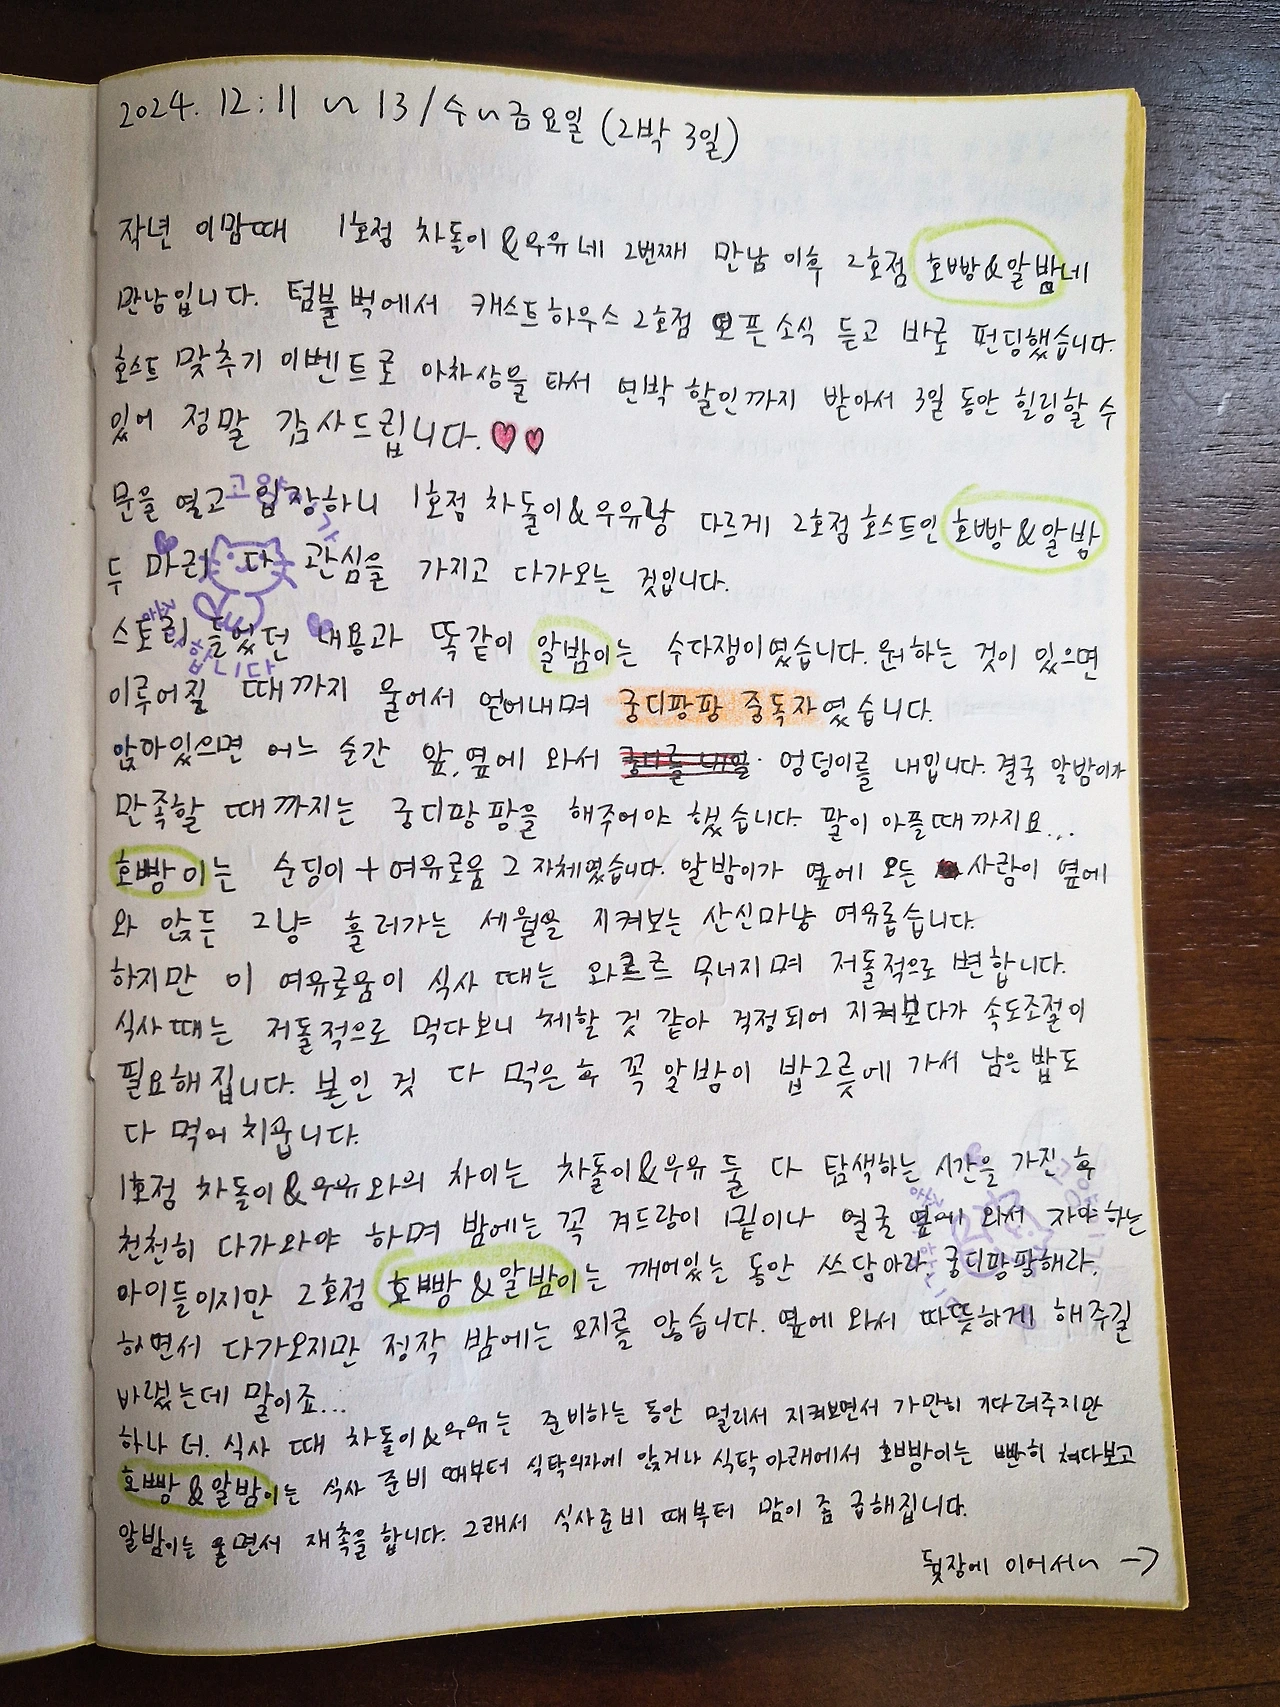 2024. 12. 11 ~ 13 / 수~금요일 (2박 3일)
작년 이맘때 1호점 차돌이&우유네 2번째 만남 이후 2호점 호빵&알밤네
만남입니다. 텀블벅에서 캐스트하우스 2호점 오픈 소식 듣고 바로 펀딩했습니다.
호스트 맞추기 이벤트로 아차상을 타서 연박 할인까지 받아서 3일 동안 힐링할 수
있어 정말 감사드립니다.♥♥
문을 열고 입장하니 1호점 차돌이&우유랑 다르게 2호점 호스트인 호빵&알밤
두 마리 다 관심을 가지고 다가오는 것입니다.
스토리 들었던 내용과 똑같이 알밤이는 수다쟁이였습니다. 원하는 것이 있으면
이루어질 때까지 울어서 얻어내며 궁디팡팡 중독자였습니다.
앉아있으면 어느 순간 앞, 옆에 와서 엉덩이를 내입니다. 결국 알밤이가
만족할 때까지는 궁디팡팡을 해주어야 했습니다. 팔이 아플때까지요...
호빵이는 순딩이 + 여유로움 그 자체였습니다. 알밤이가 옆에 오든 사람이 옆에
와 앉든 그냥 흘러가는 세월을 지켜보는 산신마냥 여유롭습니다.
하지만 이 여유로움이 식사 때는 와르르 무너지며 저돌적으로 변합니다.
식사때는 저돌적으로 먹다보니 체할 것 같아 걱정되어 지켜보다가 속도조절이
필요해집니다. 본인 것 다 먹은 후 꼭 알밤이 밥그릇에 가서 남은 밥도
다 먹어 치웁니다.
1호점 차돌이&우유와의 차이는 차돌이&우유 둘 다 탐색하는 시간을 가진 후
천천히 다가와야 하며 밤에는 꼭 겨드랑이 밑이나 얼굴 옆에 와서 자야하는
아이들이지만 2호점 호빵&알밤이는 깨어있는 동안 쓰담아라, 궁디팡팡해라.
하면서 다가오지만 정작 밤에는 오지를 않습니다. 옆에 와서 따뜻하게 해주길
바랬는데 말이죠...
하나 더. 식사 때 차돌이&우유는 준비하는 동안 멀리서 지켜보면서 가만히 기다려주지만
호빵&알밤이는 식사 준비 때부터 식탁의자에 앉거나 식탁 아래에서 호빵이는 빤히 쳐다보고
알밤이는 울면서 재촉을 합니다. 그래서 식사준비 때부터 맘이 좀 급해집니다.
뒷장에 이어서~ →